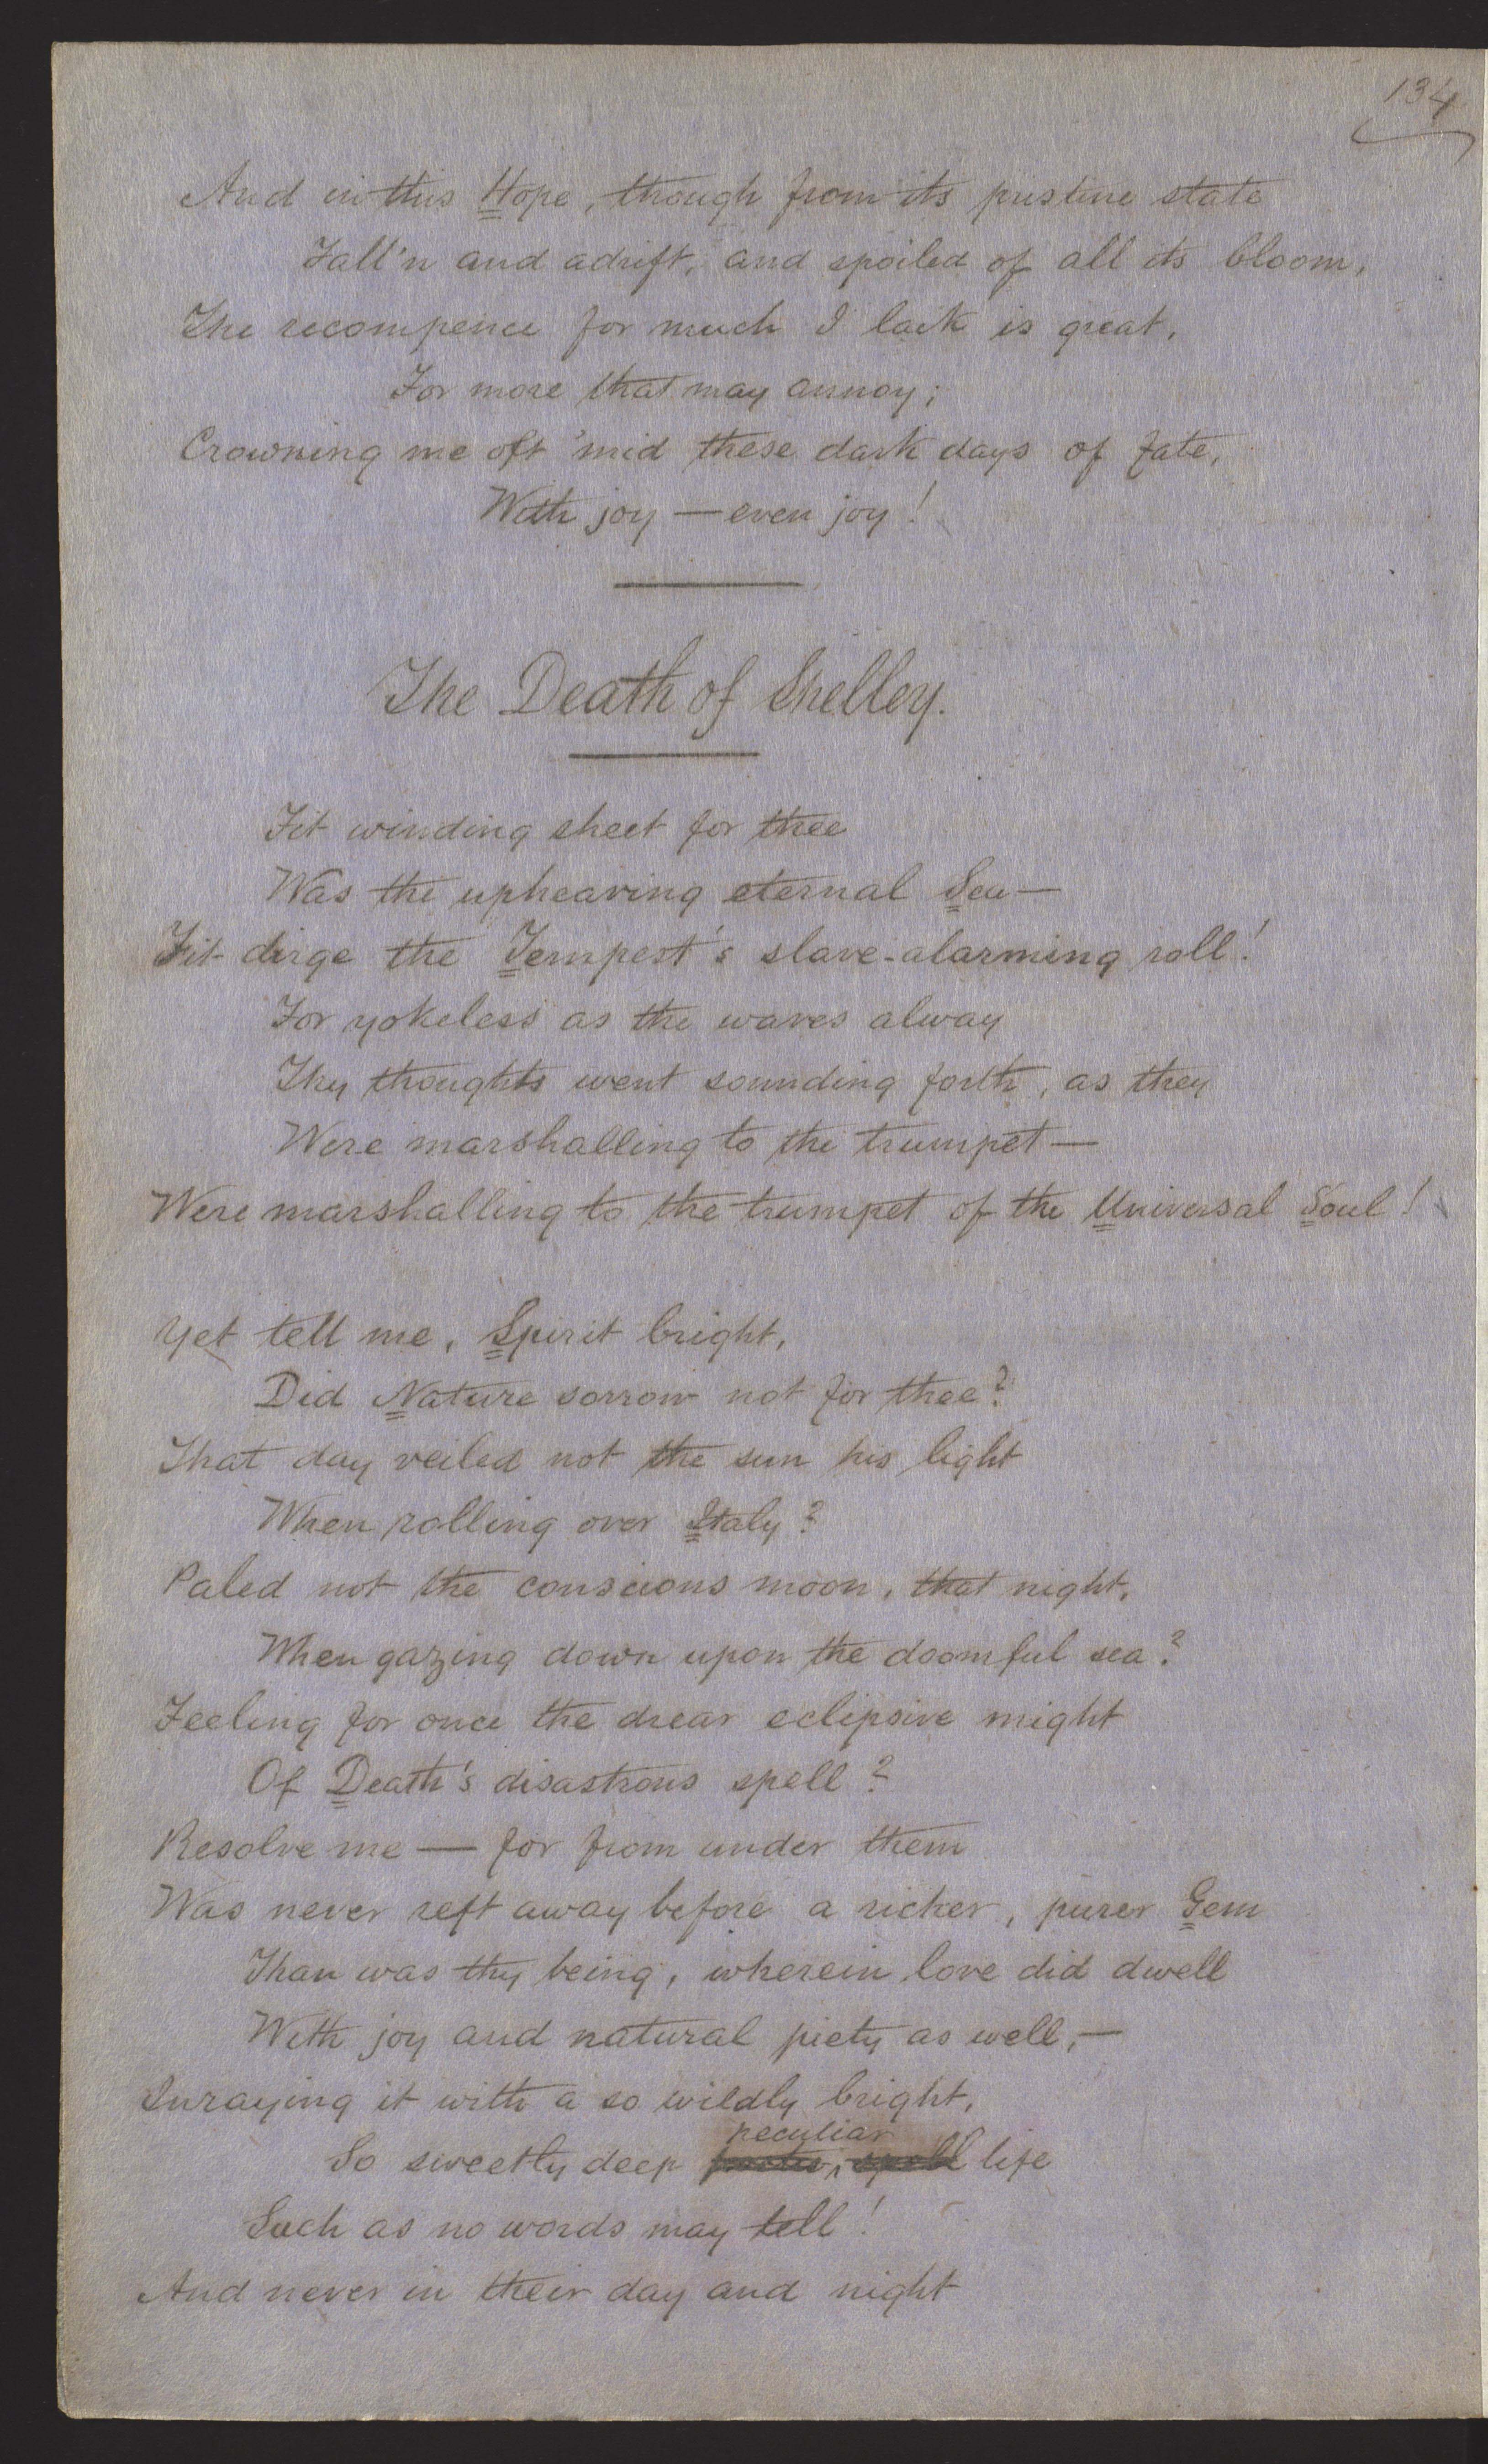 134
And in this Hope, though from its pristine state
Fall'n and adrift, and spoiled of all its bloom,
The recompence for much I lack is great,
For more that may annoy;
Crowning me oft 'mid these dark days of fate,
With joy — even joy!
The Death of Shelley.
Fit winding sheet for thee
Was the upheaving eternal Sea —
Fit dirge the Tempest's slave-alarming roll!
For yokeless as the waves alway
Thy thoughts went sounding forth, as they
Were marshalling to the trumpet —
Were marshalling to the trumpet of the Universal Soul!
Yet tell me, Spirit bright,
Did Nature sorrow not for thee?
That day veiled not the sun his light
When rolling over Italy?
Paled not the conscious moon, that night,
When gazing down upon the doomful sea?
Feeling for once the drear eclipsive might
Of Death's disastrous spell?
Resolve me — for from under them
Was never reft away before a richer, purer Gem
Than was thy being, wherein love did dwell
With joy and natural piety as well, —
Inraying it with a so wildly bright,
peculiar
So sweetly deep life
Such as no words may tell!
And never in their day and night